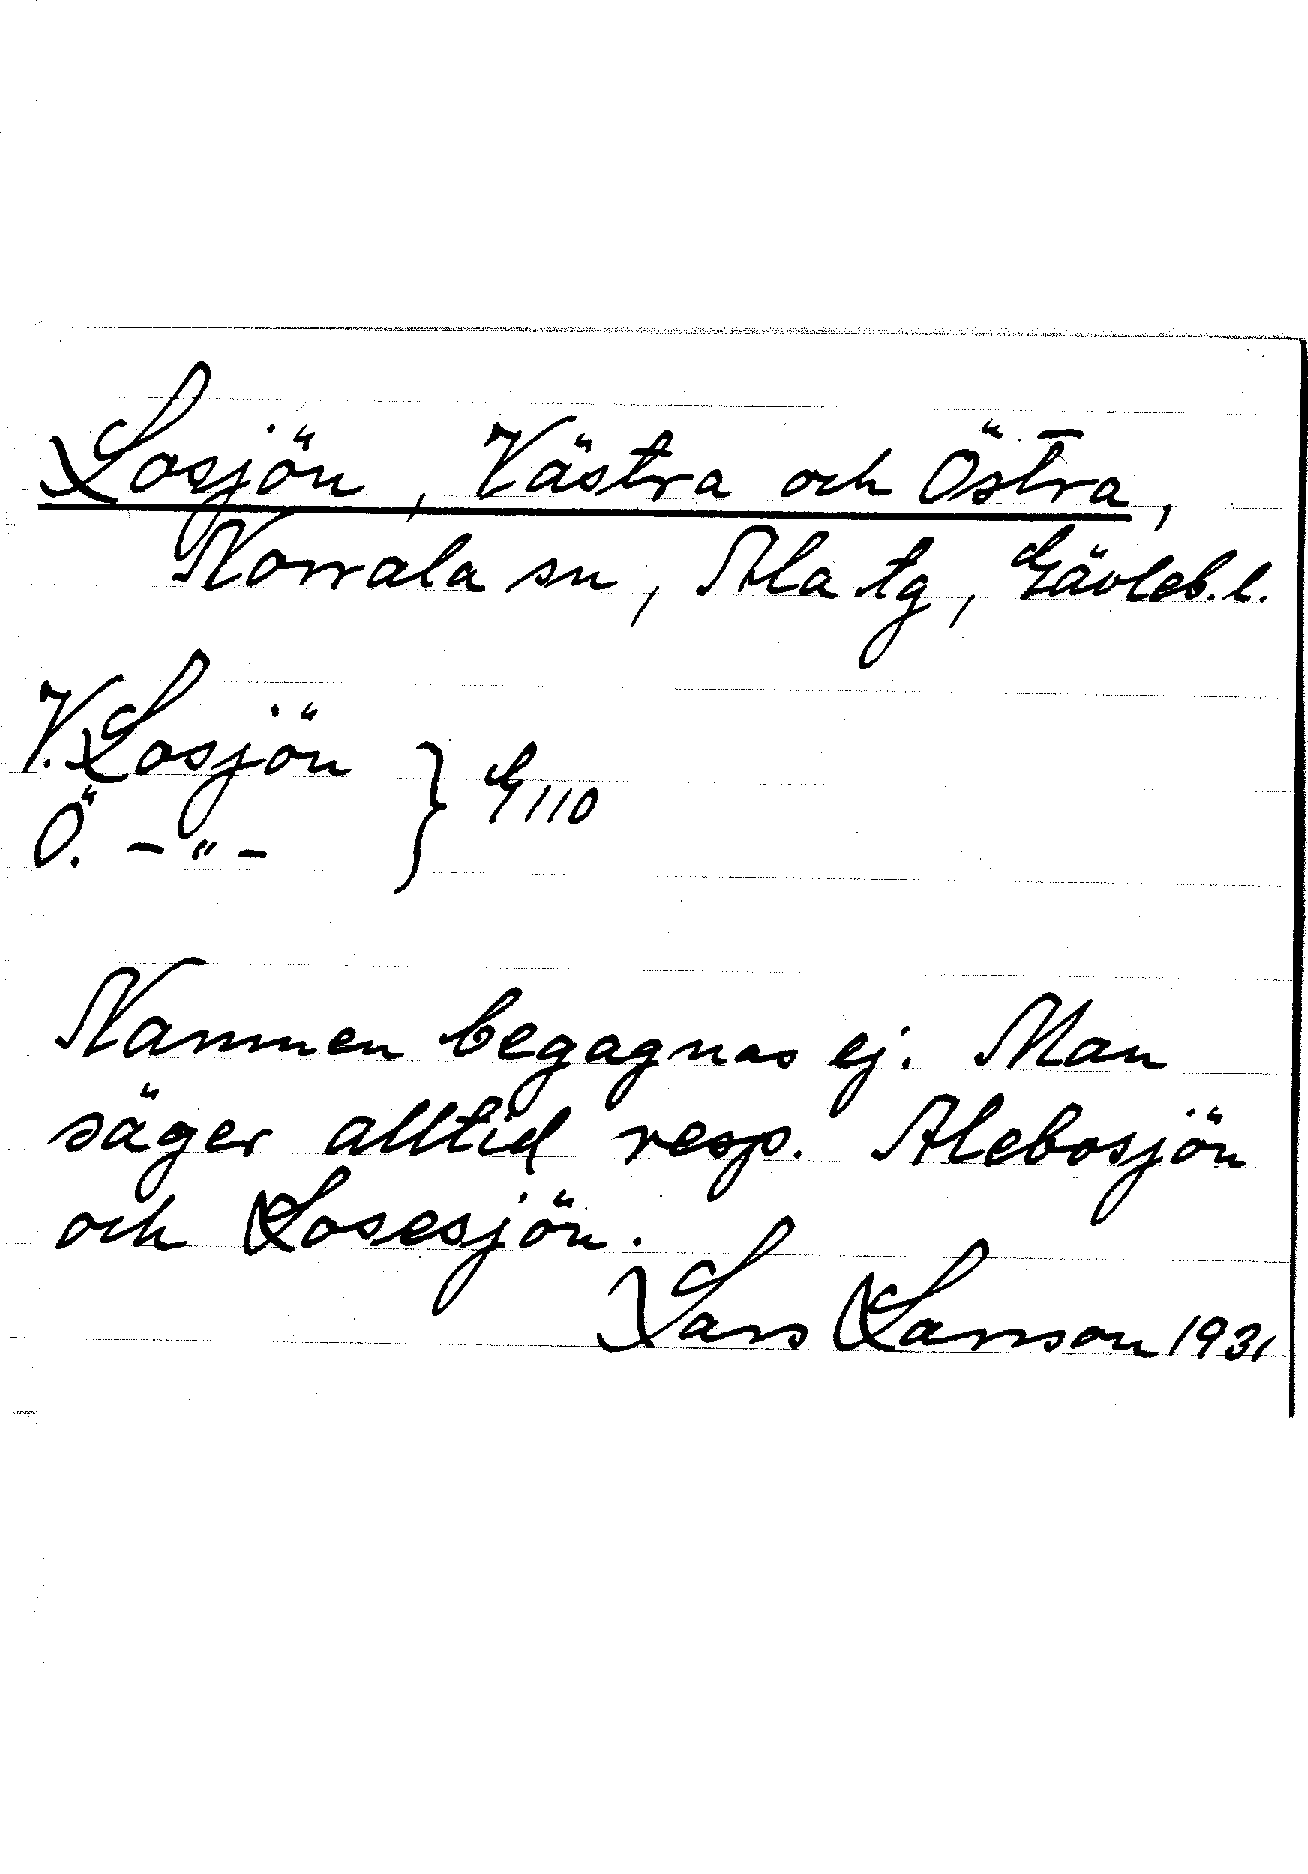 Losjön, Västra och Östra,
Norrala sn, Ala tg, Gävleb.l.
V. Losjön
Ö. -"- } G110
Namnen begagnas ej. Man
säger alltid resp. Alebosjön
och Losesjön.
Lars Larsson 1931